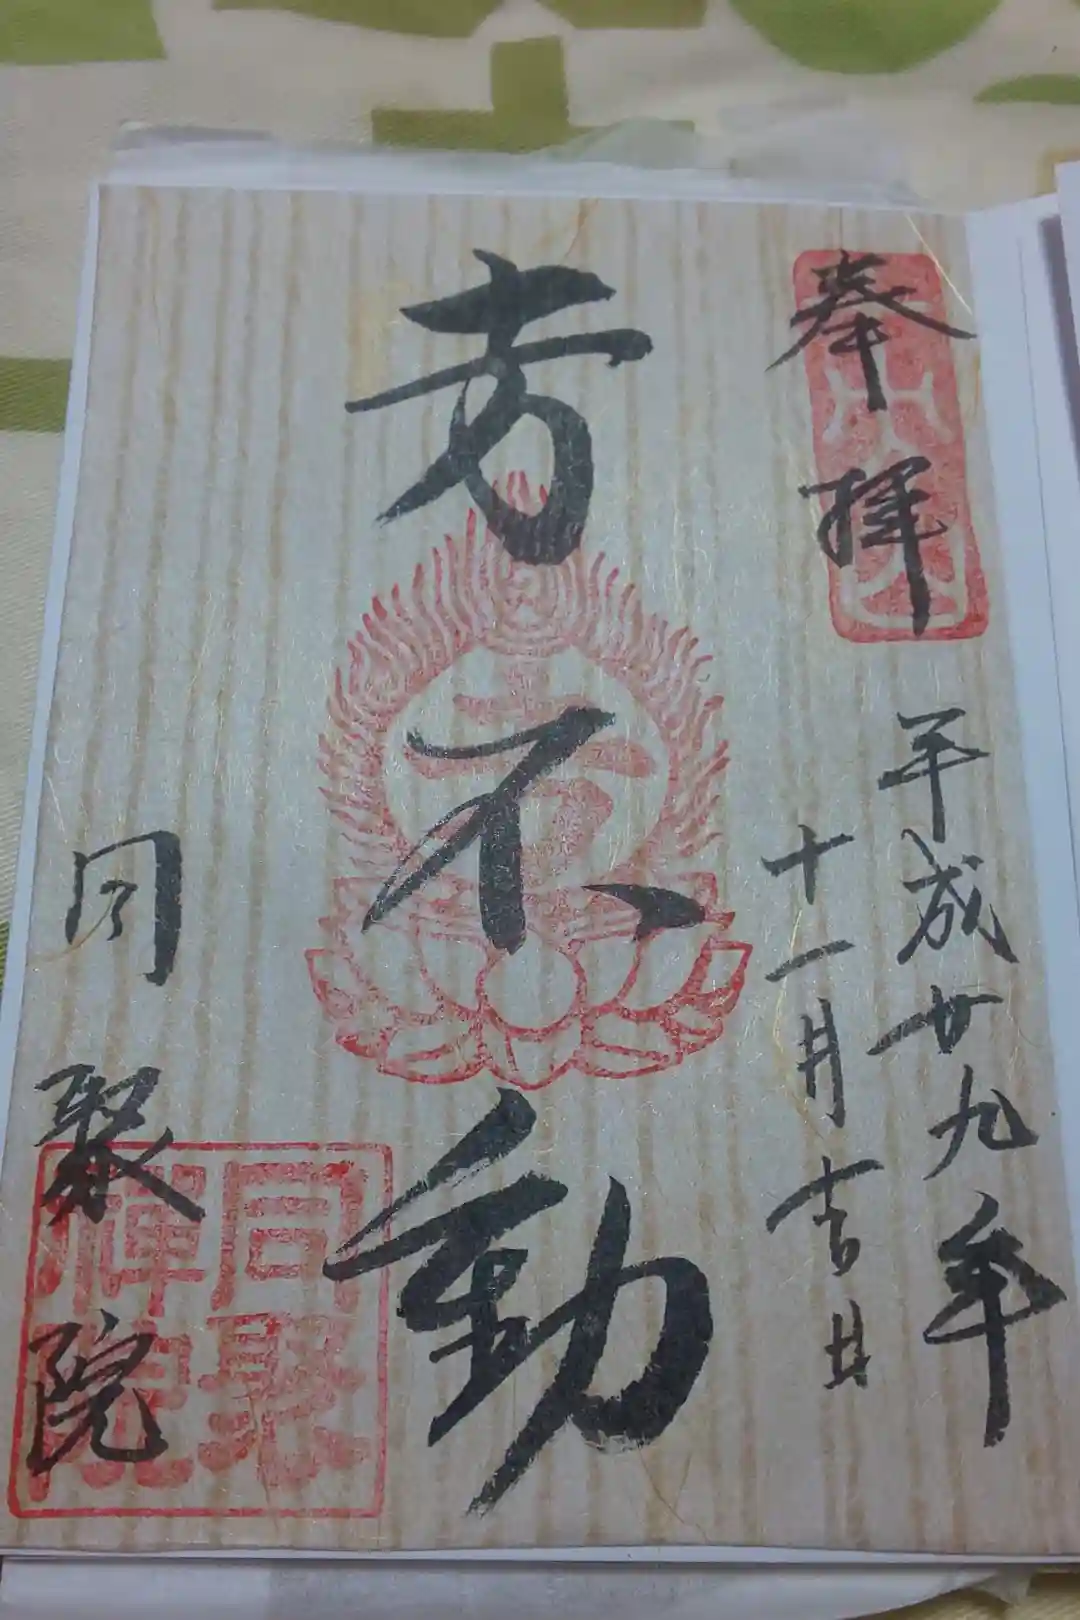 奉拝
平成廿九年
十一月吉日
芳不動
同聚院
同聚
禅院